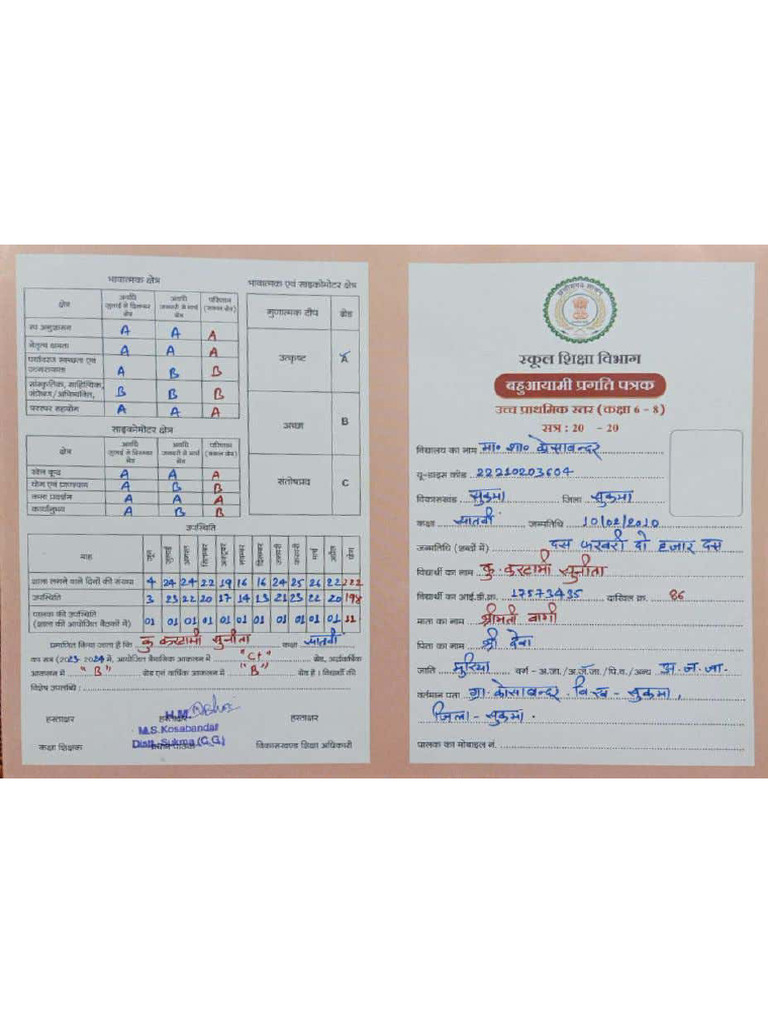 भावात्मक क्षेत्र
क्षेत्र अवधि जुलाई से दिसम्बर ग्रेड अवधि जनवरी से मार्च ग्रेड परिणाम (सकल ग्रेड)
स्व अनुशासन A A A
नेतृत्व क्षमता A A A
पर्यावरण स्वच्छता एवं उत्तरदायित्व A B B
सांस्कृतिक, साहित्यिक, संप्रेषण/अभिव्यक्ति, B B B
परस्पर सहयोग A A A
साइकोमोटर क्षेत्र
क्षेत्र अवधि जुलाई से दिसम्बर ग्रेड अवधि जनवरी से मार्च ग्रेड परिणाम (सकल ग्रेड)
खेल कूद A A A
योग एवं प्राणायाम A B B
कला प्रदर्शन A A A
कार्यानुभव A B B
भावात्मक एवं साइकोमोटर क्षेत्र
गुणात्मक टीप ग्रेड
उत्कृष्ट A
अच्छा B
संतोषप्रद C
उपस्थिति
माह जून जुलाई अगस्त सितम्बर अक्टूबर नवम्बर दिसम्बर जनवरी फरवरी मार्च अप्रैल योग
शाला लगने वाले दिनों की संख्या 4 24 24 22 19 16 16 24 25 26 22 222
उपस्थिति 3 23 22 20 17 14 13 21 23 22 20 198
पालक की उपस्थिति (शाला की आयोजित बैठकों में) 01 01 01 01 01 01 01 01 01 01 01 11
प्रमाणित किया जाता है कि कु करटामी सुनीता कक्षा सातवीं
का सत्र (2023-2024 में, आयोजित त्रैमासिक आकलन में "C+" ग्रेड, अर्द्धवार्षिक
आकलन में "B" ग्रेड एवं वार्षिक आकलन में "B" ग्रेड है। विद्यार्थी की
विशेष उपलब्धि :
हस्ताक्षर हस्ताक्षर हस्ताक्षर
H.M.
M.S.Kosabandar
Distt. Sukma (C.G.)
कक्षा शिक्षक विकासखण्ड शिक्षा अधिकारी
छत्तीसगढ़ शासन
स्कूल शिक्षा विभाग
बहुआयामी प्रगति पत्रक
उच्च प्राथमिक स्तर (कक्षा 6 - 8)
सत्र : 20 - 20
विद्यालय का नाम मा० शा० कोसाबन्दर
यू-डाइस कोड 22210203604
विकासखण्ड सुकमा जिला सुकमा
कक्षा सातवीं जन्मतिथि 10/02/2010
जन्मतिथि (शब्दों में) दस फरवरी दो हजार दस
विद्यार्थी का नाम कु. करटामी सुनीता
विद्यार्थी का आई.डी.क्र. 17573435 दाखिल क्र. 86
माता का नाम श्रीमती बागी
पिता का नाम श्री देवा
जाति मुरिया वर्ग - अ.जा./अ.ज.जा./पि.व./अन्य अ.ज.जा.
वर्तमान पता ग्रा. कोसाबन्दर वि.ख - सुकमा,
जिला - सुकमा.
पालक का मोबाइल नं.